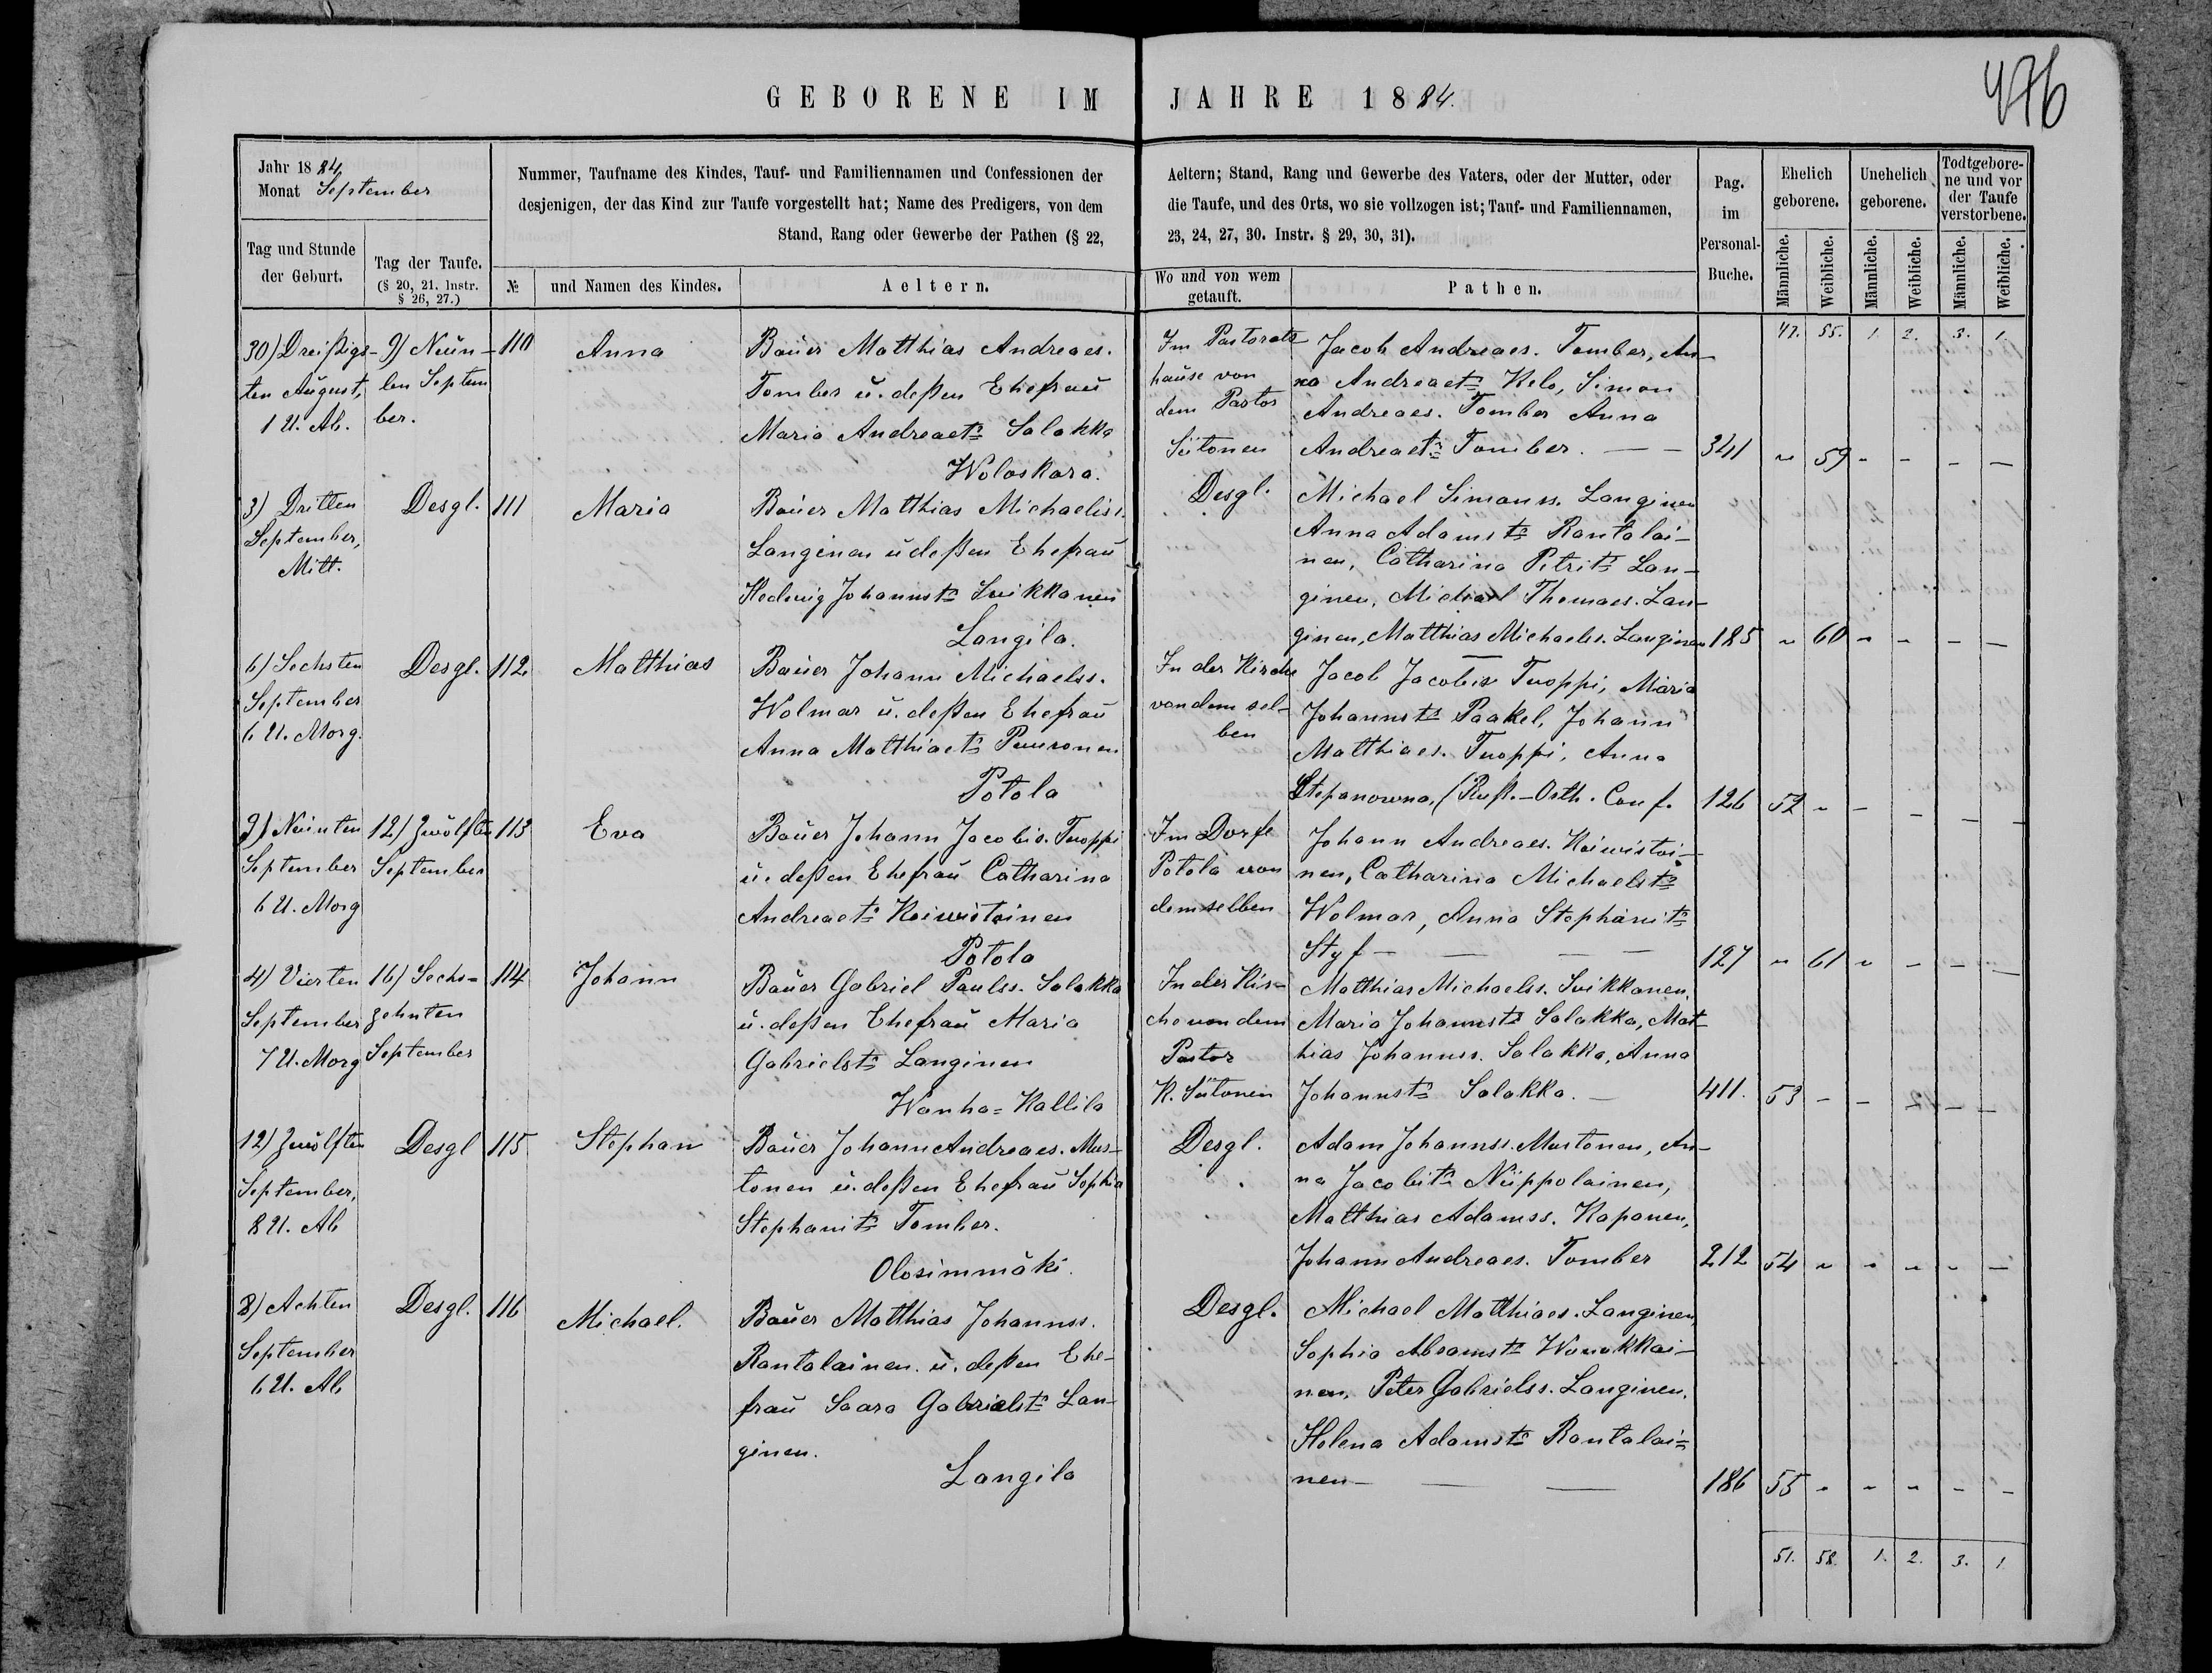 476
GEBORENE IM JAHRE 1884.
Jahr 1884
Monat September
Nummer, Taufname des Kindes, Tauf- und Familiennamen und Confessionen der Aeltern; Stand, Rang und Gewerbe des Vaters, oder der Mutter, oder
desjenigen, der das Kind zur Taufe vorgestellt hat; Name des Predigers, von dem die Taufe, und des Orts, wo sie vollzogen ist; Tauf- und Familiennamen,
Stand, Rang oder Gewerbe der Pathen (§ 22, 23, 24, 27, 30. Instr. § 29, 30, 31).
Tag und Stunde
der Geburt.
Tag der Taufe.
(§ 20, 21. Instr.
§ 26, 27.)
№
und Namen des Kindes.
Aeltern.
Wo und von wem
getauft.
Pathen.
Pag.
im
Personal-
Buche.
Ehelich
geborene.
Unehelich
geborene.
Todtgebore-
ne und vor
der Taufe
verstorbene.
Männliche.
Weibliche.
Männliche.
Weibliche.
Männliche.
Weibliche.
47. 55. 1. 2. 3. 1.
30) Dreißigs-
ten August,
1 U. Ab.
9) Neun-
ten Septem
ber.
110
Anna
Bauer Matthias Andreaes.
Tomber u. deßen Ehefrau
Maria Andreaets Salakka
Woloskara.
Im Pastorats
hause von
dem Pastor
Sütonen
Jacob Andreaes. Tomber, An-
na Andreaets Kelo, Simon
Andreaes. Tomber Anna
Andreaets Tomber. — —
341 " 59 " - - -
3) Dritten
September,
Mitt.
Desgl.
111
Maria
Bauer Matthias Michaelis s.
Langinen u deßen Ehefrau
Hedwig Johannsts Suikkanen
Langila.
Desgl.
Michael Simonss. Langinen
Anna Adamsts Rantalai-
nen, Catharina Petrits Lan-
ginen, Michael Thomaes. Lan-
ginen, Matthias Michaelss. Langinen
185 " 60 " - - -
6) Sechsten
September
6 U. Morg.
Desgl.
112.
Matthias
Bauer Johann Michaelss.
Wolmar u. deßen Ehefrau
Anna Matthiaets Puuronen
Potola
In der Kirche
von dem sel-
ben
Jacob Jacobis Tuoppi, Maria
Johannsts Paakel, Johann
Matthiaes. Tuoppi, Anna
Stepanowna, (Ruß.-Orth. Conf.
126 52 " - - - -
9) Neunten
September
6 U. Morg
12) Zwölften
September
113
Eva
Bauer Johann Jacobis. Tuoppi
u. deßen Ehefrau Catharina
Andreaets Koiwistoinen
Potola
Im Dorfe
Potola von
demselben
Johann Andreaes. Koiwistoi-
nen, Catharina Michaelsts
Wolmar, Anna Stephanits
Styf — — — —
127 " 61 " - - -
4) Vierten
September
7 U. Morg
16) Sechs-
zehnten
September
114
Johann
Bauer Gabriel Paulss. Salakka
u. deßen Ehefrau Maria
Gabrielsts Langinen
Wanha-Kallila
In der Kir-
che von dem
Pastor
K. Sütonen
Matthias Michaelss. Suikkanen,
Maria Johannsts Salakka, Mat-
hias Johannss. Salakka, Anna
Johannsts Salakka. —
411. 53 - - - -
12) Zwölften
September,
8 U. Ab
Desgl
115
Stephan
Bauer Johann Andreaes. Mus-
tonen u. deßen Ehefrau Sophia
Stephanits Tomber.
Olosimmäki.
Desgl.
Adam Johannss. Mustonen, An-
na Jacobits Nüppolainen,
Matthias Adamss. Kaponen,
Johann Andreaes. Tomber
212 54 " " " " -
8) Achten
September
6 U. Ab
Desgl.
116
Michael.
Bauer Matthias Johannss.
Rantalainen u. deßen Ehe-
frau Saara Gabrielsts Lan-
ginen.
Langila
Desgl.
Michael Matthiaes. Langinen
Sophia Abramsts Wonokkai-
nen, Peter Gabrielss. Langinen.
Helena Adamsts Rantalai-
nen — — —
186 55 " " " - -
51. 58. 1. 2. 3. 1.